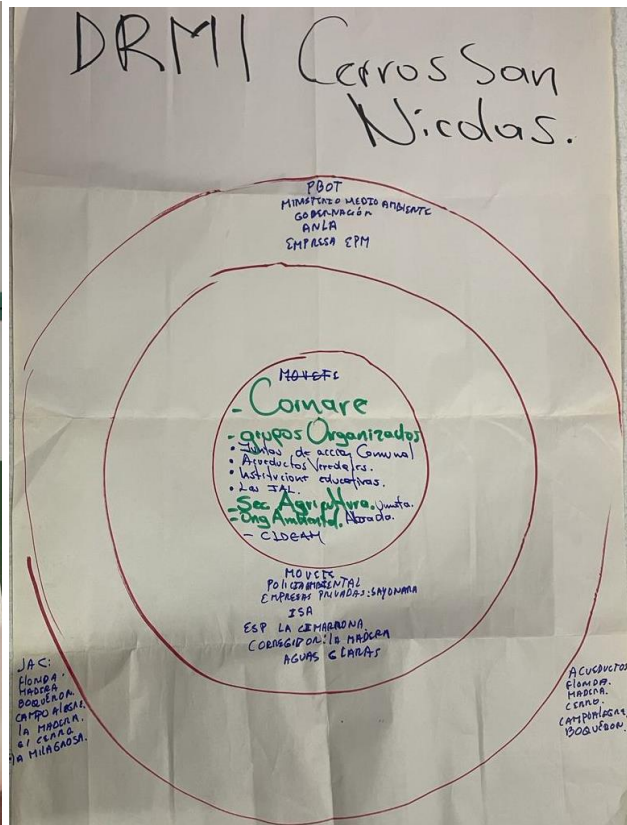 DRMI Cerros San
Nicolas.
PBOT
MINISTERIO MEDIO AMBIENTE
GOBERNACIÓN
ANLA
EMPRESA EPM
- Cornare
- grupos Organizados
• Juntas de acción Comunal
• Acueductos Veredales.
• Instituciones educativas.
• Las JAL.
- Sec. Agricultura. Umata.
- Ong Ambiental.
- CIDEAM
POLICIA AMBIENTAL
EMPRESAS PRIVADAS: SAYONARA
ISA
ESP LA CIMARRONA
CORREGIDOR: LA MADERA
AGUAS CLARAS
JAC:
FLORIDA.
MADERA
BOQUERON.
CAMPO ALEGRE.
LA MADERA.
El CERRO.
LA MILAGROSA.
ACUEDUCTOS
FLORIDA.
MADERA.
CERRO.
CAMPOALEGRE.
BOQUERON.